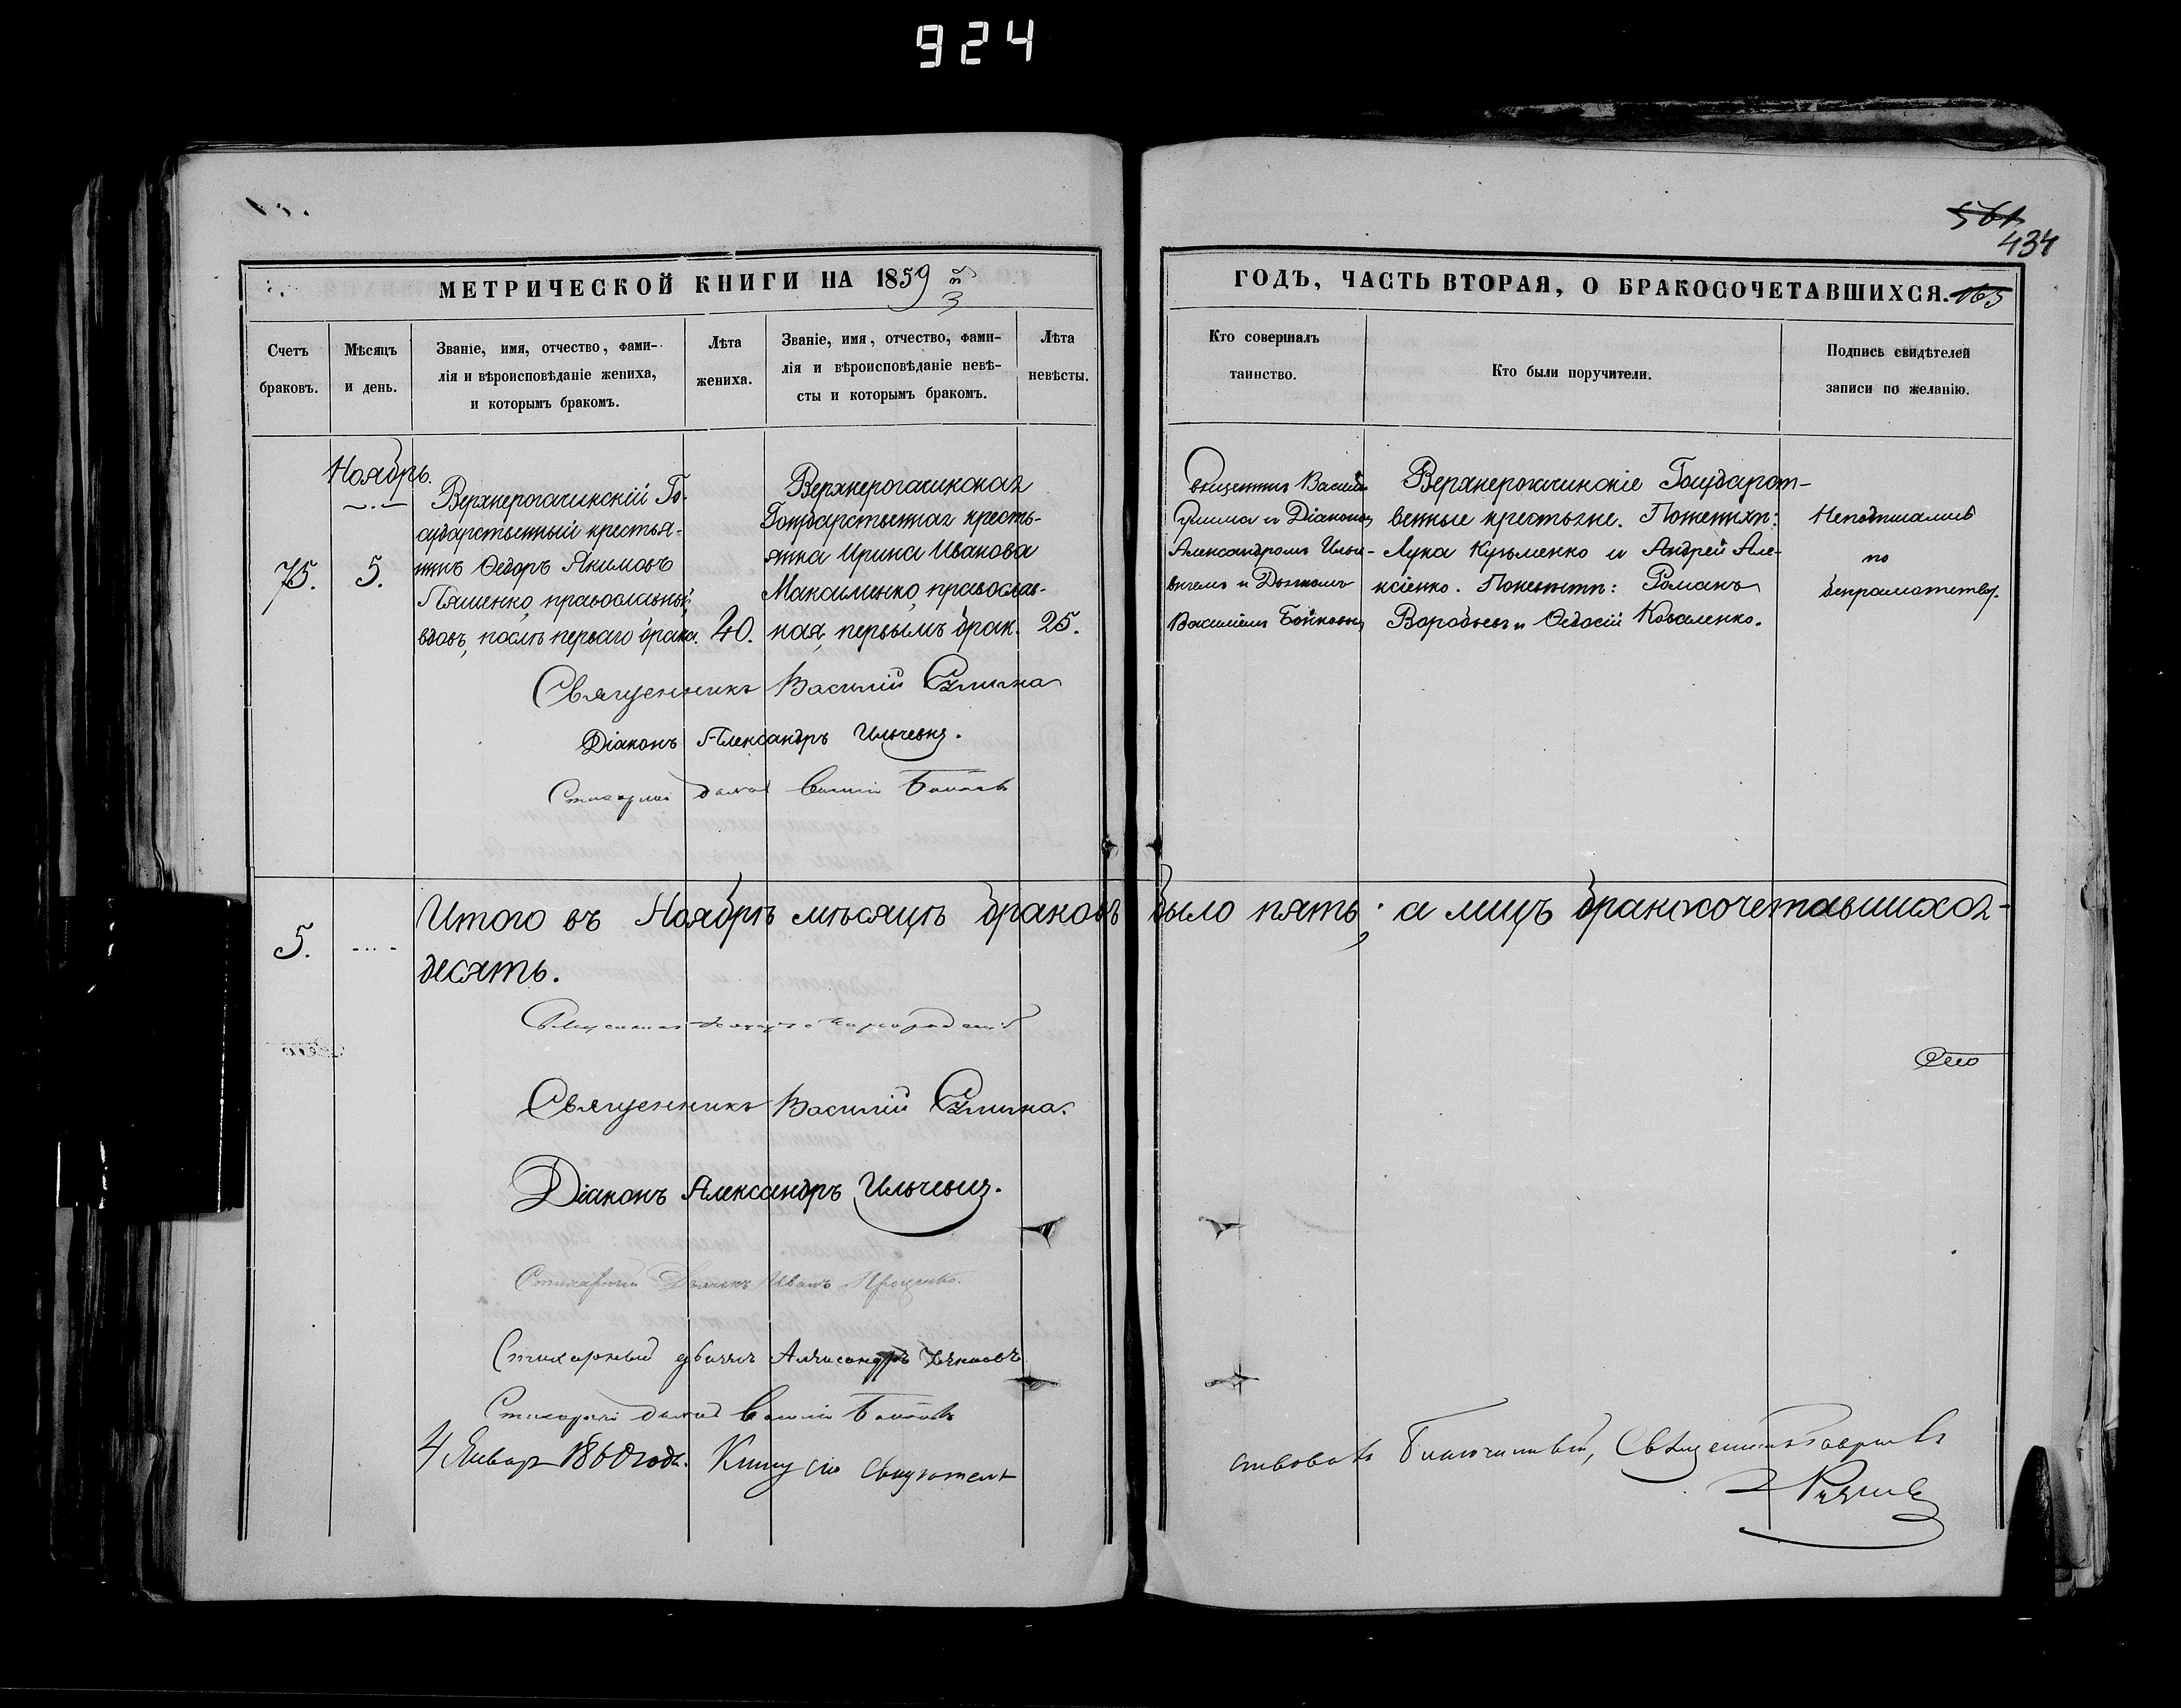 924
561
434
МЕТРИЧЕСКОЙ КНИГИ НА 1859 й
ГОДЪ, ЧАСТЬ ВТОРАЯ, О БРАКОСОЧЕТАВШИХСЯ. 165
Счетъ
браковъ.
Мѣсяцъ
и день.
Званіе, имя, отчество, фами-
лія и вѣроисповѣданіе жениха,
и которымъ бракомъ.
Лѣта
жениха.
Званіе, имя, отчество, фами-
лія и вѣроисповѣданіе невѣ-
сты и которымъ бракомъ.
Лѣта
невѣсты.
Кто совершалъ
таинство.
Кто были поручители.
Подпись свидѣтелей
записи по желанію.
75.
Ноябрь.
5.
Верхнерогачинскій Го-
сударственный крестья-
нинъ Ѳедоръ Якимовъ
Пященко, православный,
вдовъ, послѣ перваго брака.
40.
Верхнерогачинская
Государственная кресть-
янка Ирина Иванова
Максименко, православ-
ная, первымъ брак.
25.
Священник Василій
и Діаконъ
Александромъ Ильи-
вичемъ и Дьячкомъ
Василіемъ Бойковымъ
Верхнерогачинскіе Государст-
венные крестьяне. По женихѣ:
Лука Кузьменко и Андрей Але-
ксіенко. По невѣстѣ: Романъ
Воробьевъ и Ѳедосій Коваленко.
Неподписались
по
безграмотству.
Священникъ Василій
Діаконъ Александръ Ильчевичъ.
Стихарный дьячокъ Василій Бойковъ
5.
Итого въ Ноябрѣ мѣсяцѣ браковъ было пять; а лицъ бракосочетавшихся-
десять.
Священникъ
Священникъ Василій
Діаконъ Александръ Ильчевичъ.
Стихарный Дьячокъ Иванъ Яроценко.
Стихарный дьячокъ Александръ
Стихарный дьячокъ Василій Бойковъ
4 Января 1860 года. Книгу сію свидѣтель-
ствовалъ Благочинный, Священникъ Гавріилъ